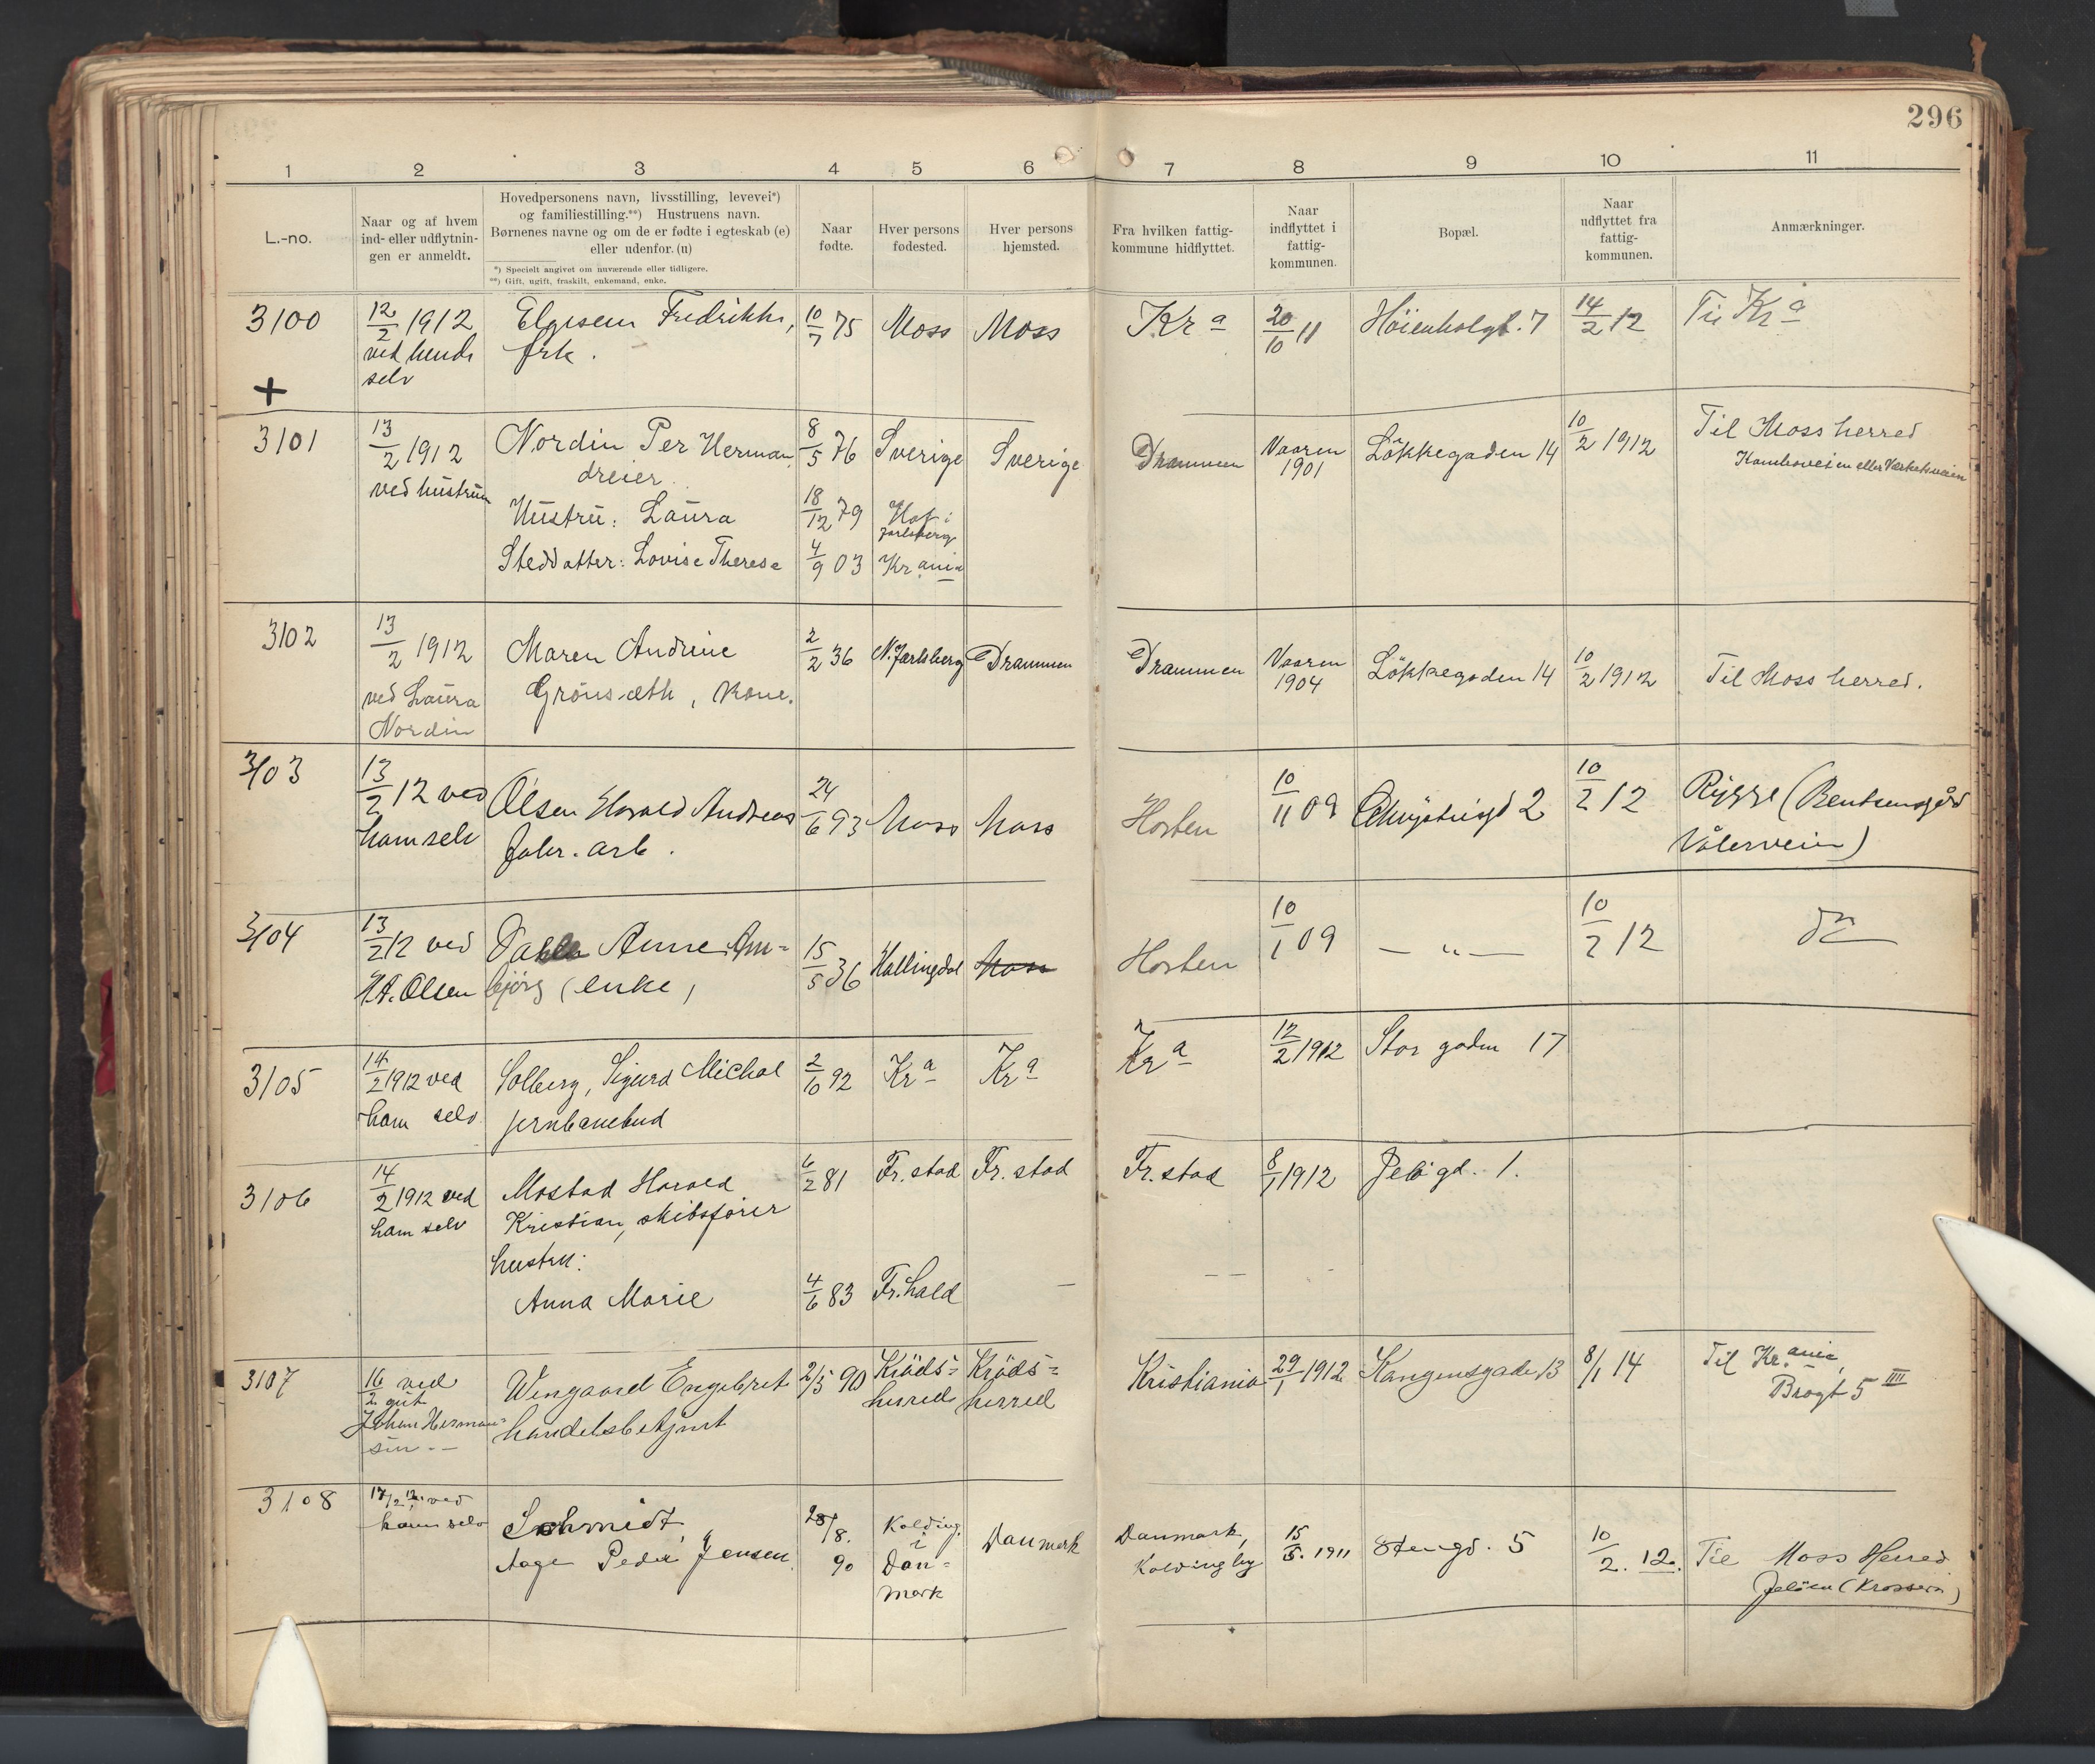 296
1 2 3 4 5 6 7 8 9 10 11
L.-no.
Naar og af hvem
ind- eller udflytnin-
gen er anmeldt.
Hovedpersonens navn, livsstilling, levevei*)
og familiestilling.**) Hustruens navn.
Børnenes navne og om de er fødte i egteskab (e)
eller udenfor. (u)
*) Specielt angivet om nuværende eller tidligere.
**) Gift, ugift, fraskilt, enkemand, enke.
Naar
fødte.
Hver persons
fødested.
Hver persons
hjemsted.
Fra hvilken fattig-
kommune hidflyttet.
Naar
indflyttet i
fattig-
kommunen.
Bopæl.
Naar
udflyttet fra
fattig-
kommunen.
Anmærkninger.
3100
+
12/2 1912
ved hende
selv
Elgesem Fredrikke,
frk.
10/7 75
Moss
Moss
Kra
20/10 11
Höienholgt. 7
14/2 12
Til Kra
3101
13/2 1912
ved hustrün
Nordin Per Herman
dreier.
Hüstrü: Laüra
Steddatter: Lovise Therese
8/5 76
18/12 79
4/9 03
Sverige
Hof i
Jarlsberg
Krania
Sverige
Drammen
Vaaren
1901
Lökkegaden 14
10/2 1912
Til Moss herred
Kamboveien eller Værketsveien
3102
13/2 1912
ved Laüra
Nordin
Maren Andrine
Grönsæth, kone.
2/2 36
N. Jarlsberg
Drammen
Drammen
Vaaren
1904
Lökkegaden 14
10/2 1912
Til Moss herred.
3103
13/2 12 ved
ham selv
Olsen Harald Andreas
fabr. arb.
24/6 93
Moss
Moss
Horten
10/11 09
2
10/2 12
Rygge (Bentsensgård
Vålerveien)
3104
13/2 12 ved
H.A. Olsen
Anne Am-
björg (enke)
15/5 36
Hallingdal
Moss
Horten
10/1 09
— „ —
10/2 12
do
3105
14/2 1912 ved
ham selv
Solberg, Sigurd Michal
jernbanebud
2/10 92
Kra
Kra
Kra
12/2 1912
Stor gaden 17
3106
14/2 1912 ved
ham selv
Mostad Harald
Kristian, skibsfører
hustru:
Anna Marie
6/2 81
4/6 83
Fr. stad
Fr. hald
Fr. stad
—
Fr. stad
8/1 1912
Jelögd. 1.
3107
16/2 ved
gut
Johan Herman-
sen
Wengaard Engebret
handelsbetjent
2/5 90
Kröds-
herred
Kröds-
herred
Kristiania
29/1 1912
Kongensgade 13
8/1 14
Til Kr.ania,
Brogt 5 IIII
3108
17/2 12 ved
ham selv
Schmidt,
Aage Peder Jensen
28/8.
90
Kolding
i
Dan-
mark
Danmark
Danmark,
Kolding by
15/5. 1911
Stengd. 5
10/2. 12.
Til Moss Herred
Jelöen (Krossern)